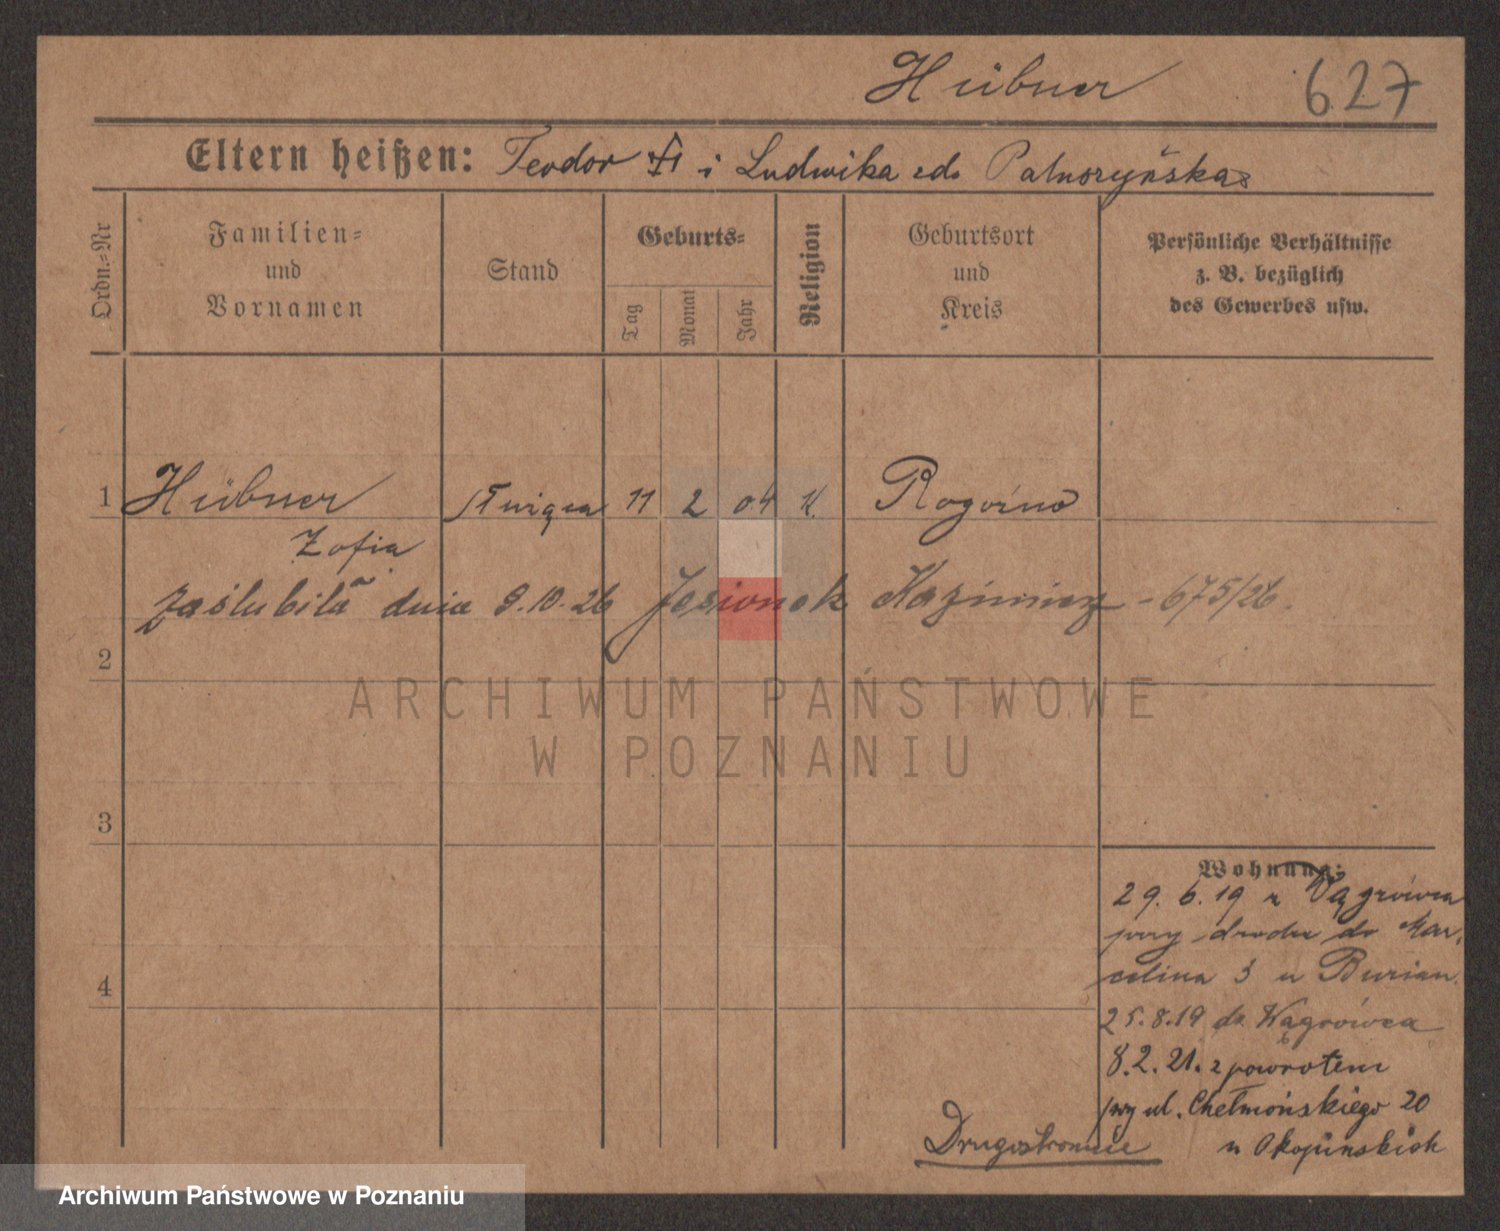 Hübner 627
Eltern heißen: Teodor H i Ludwika zd.
Ordn.=Nr
Familien=
und
Vornamen
Stand
Geburts=
Tag
Monat
Jahr
Religion
Geburtsort
und
Kreis
Persönliche Verhältnisse
z. B. bezüglich
des Gewerbes usw.
1 Hübner służąca 11 2 04 K. Rogoźno
Zofia
zaślubiła dnia 9.10.26 Jesionek Kazimierz - 675/26.
2
3
4
Wohnung:
29. 6. 19 z Wągrówca
przy drodze do Mar.
celina 3 u Burian.
25.8.19 do Wągrówca
8.2.21. z powrotem
przy ul. Chełmońskiego 20
u Okopińskich
Drugostronnie
ARCHIWUM PAŃSTWOWE
W POZNANIU
Archiwum Państwowe w Poznaniu